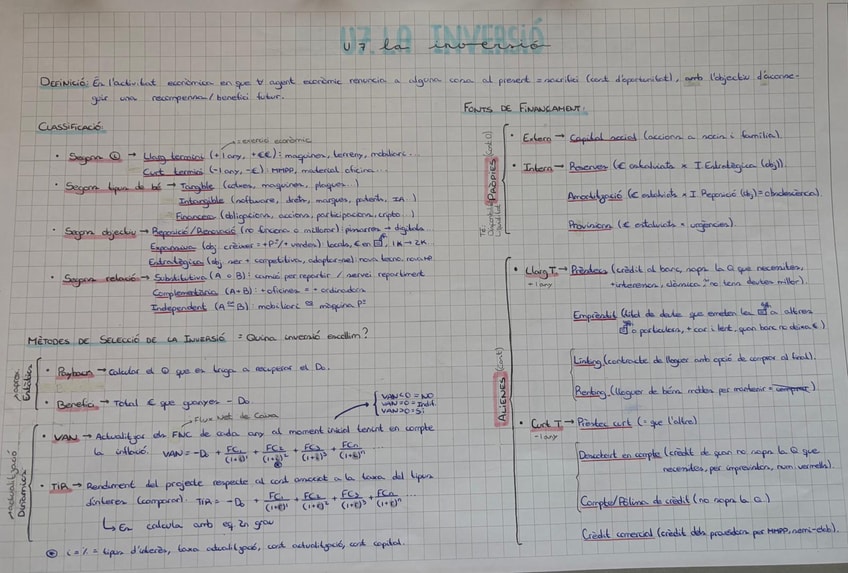 U7. LA INVERSIÓ
U7. la inversió
DEFINICIÓ: És l'activitat econòmica en que ∀ agent econòmic renuncia a alguna cosa al present = sacrifici (cost d'oportunitat), amb l'objectiu d'aconse-
guir una recompensa/benefici futur.
CLASSIFICACIÓ:
→ exercici econòmic
• Segons → Llarg termini (+1 any, +€€): maquines, terreny, mobiliari...
Curt termini (-1 any, -€): MMPP, material oficina...
• Segons tipus de bé → Tangible (cotxes, maquines, plaques...)
Intangible (software, drets, marques, patents, IA...)
Financera (obligacions, accions, participacions, cripto...)
• Segons objectiu → Reposició/Renovació (no funciona o millorar) pissarres → digitals
Expansiva (obj. créixer = +P²/+ vendes): locals, € en, 1K → 2K...
Estratègica (obj. ser + competitiva, adaptar-se): nova tecno,
• Segons relació → Substitutiva (A o B): camió per repartir / servei repartiment
Complementària (A+B): + oficines = + ordinadors
Independent (A≠B): mobiliari màquina P²
MÈTODES DE SELECCIÓ DE LA INVERSIÓ = Quina inversió escollim?
→ aprox
Estàtics
• Payback → Calcular el que es triga a recuperar el D₀.
• Benefici → Total € que guanyes - D₀.
→ Flux Net de Caixa
VAN<0 = NO
VAN=0 = Indif.
VAN>0 = Sí
→ actualització
Dinàmics
• VAN → Actualitzar els FNC de cada any al moment inicial tenint en compte
la inflació. VAN = -D₀ + FC₁/(1+i)¹ + FC₂/(1+i)² + FC₃/(1+i)³ + FCn/(1+i)ⁿ
• TIR → Rendiment del projecte respecte al cost associat a la taxa del tipus
d'interès (comparar). TIR = -D₀ + FC₁/(1+r)¹ + FC₂/(1+r)² + FC₃/(1+r)³ + FCn/(1+r)ⁿ ...
↳ Es calcula amb eq 2n grau
i = % = tipus d'interès, taxa actualització, cost actualització, cost capital.
FONTS DE FINANÇAMENT:
PRÒPIES (cont)
• Extern → Capital social (accions a socis i família).
• Intern → Reserves (€ estalviats x I. Estratègica (obj)).
Amortització (€ estalviats x I. Reposició (obj) = obsolescència).
Provisions (€ estalviats x urgències).
ALIENES (cont)
• Llarg T. → Préstecs (crèdit al banc, saps la Q que necessites,
+1 any
+ interessos, no tenir deutes millor).
Emprèstit (títol de deute que emeten les a altres
o particulars, + car i lent, quan banc no deixa €)
Lísing (contracte de lloguer amb opció de compra al final).
Renting (lloguer de béns mobles per mantenir)
• Curt T → Préstec curt (= que l'altre)
-1 any
Descobert en compte (crèdit de quan no saps la Q que
necessites, per imprevistos, num. vermells).
Compte/Pòlissa de crèdit (no saps la Q.)
Crèdit comercial (crèdit dels proveïdors per MMPP, semi-elab.).